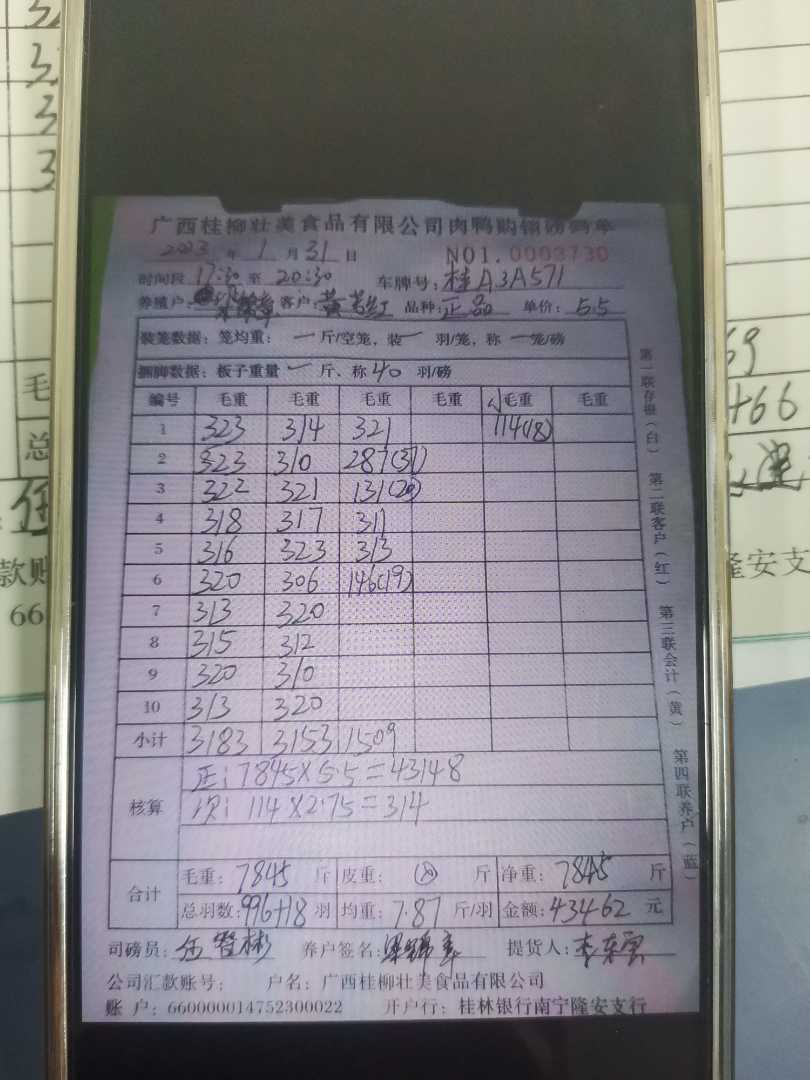 广西桂柳壮美食品有限公司肉鸭购销磅码单
2023 年 1 月 31 日 NO1. 0003730
时间段 17:30 至 20:30 车牌号: 桂A3A571
养殖户: 客户: 黄 红 品种: 正品 单价: 5.5
装笼数据: 笼均重: 一 斤/空笼, 装 一 羽/笼, 称 一 笼/磅
捆脚数据: 板子重量 一 斤、称 40 羽/磅
编号 毛重 毛重 毛重 毛重 小毛重 毛重
1 323 314 321 114(18)
2 323 310 287(37)
3 322 321 131(20)
4 318 317 311
5 316 323 313
6 320 306 146(19)
7 313 320
8 315 312
9 320 310
10 313 320
小计 3183 3153 1509
核算
正: 7845×5.5=43148
次: 114×2.75=314
合计
毛重: 7845 斤 皮重: 斤 净重: 7845 斤
总羽数: 996+18 羽 均重: 7.87 斤/羽 金额: 43462 元
司磅员: 伍 彬 养户签名: 提货人: 李东
公司汇款账号: 户名: 广西桂柳壮美食品有限公司
账 户: 660000014752300022 开户行: 桂林银行南宁隆安支行
第一联存根(白)
第二联客户(红)
第三联会计(黄)
第四联养户(蓝)
毛
总
款账
66
69
+66
隆安支